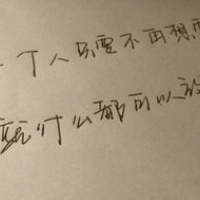 一个人只要不再想要
就什么都可以放